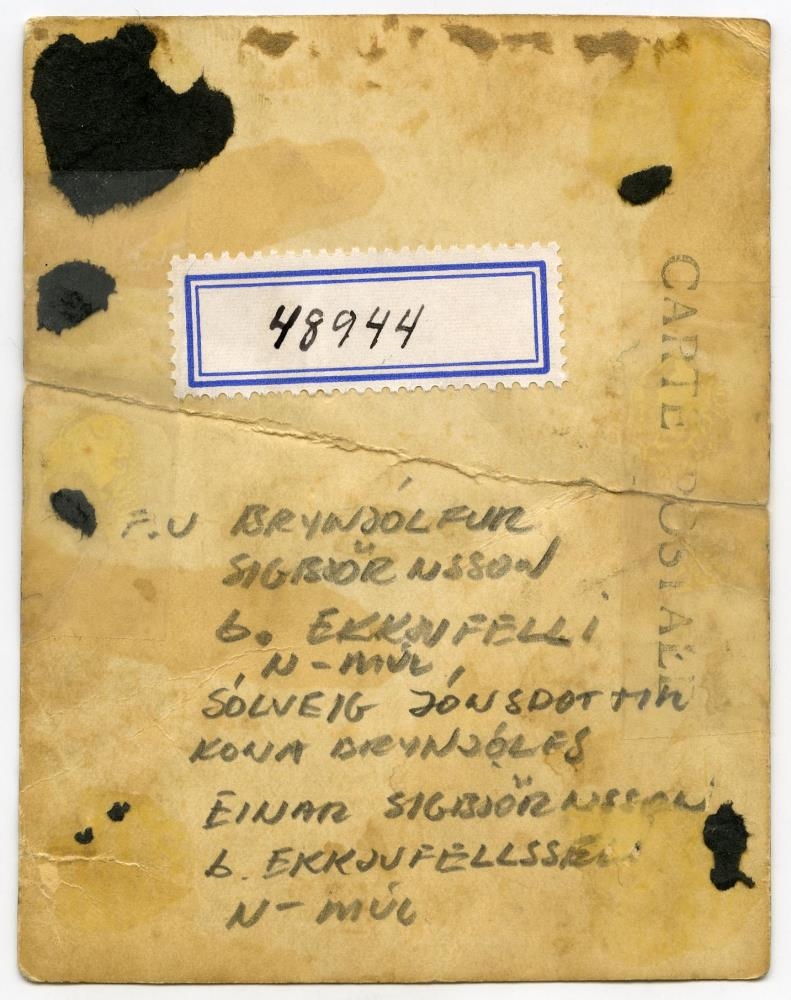 48944
CARTE POSTALE
F.V BRYNJÓLFUR
SIGBJÖRNSSON
b. EKKJUFELLI
N-MÚL,
SÓLVEIG JÓNSDOTTIR
KONA BRYNJÓLFS
EINAR SIGBJÖRNSSON
b. EKKJUFELLSSELI
N-MÚL